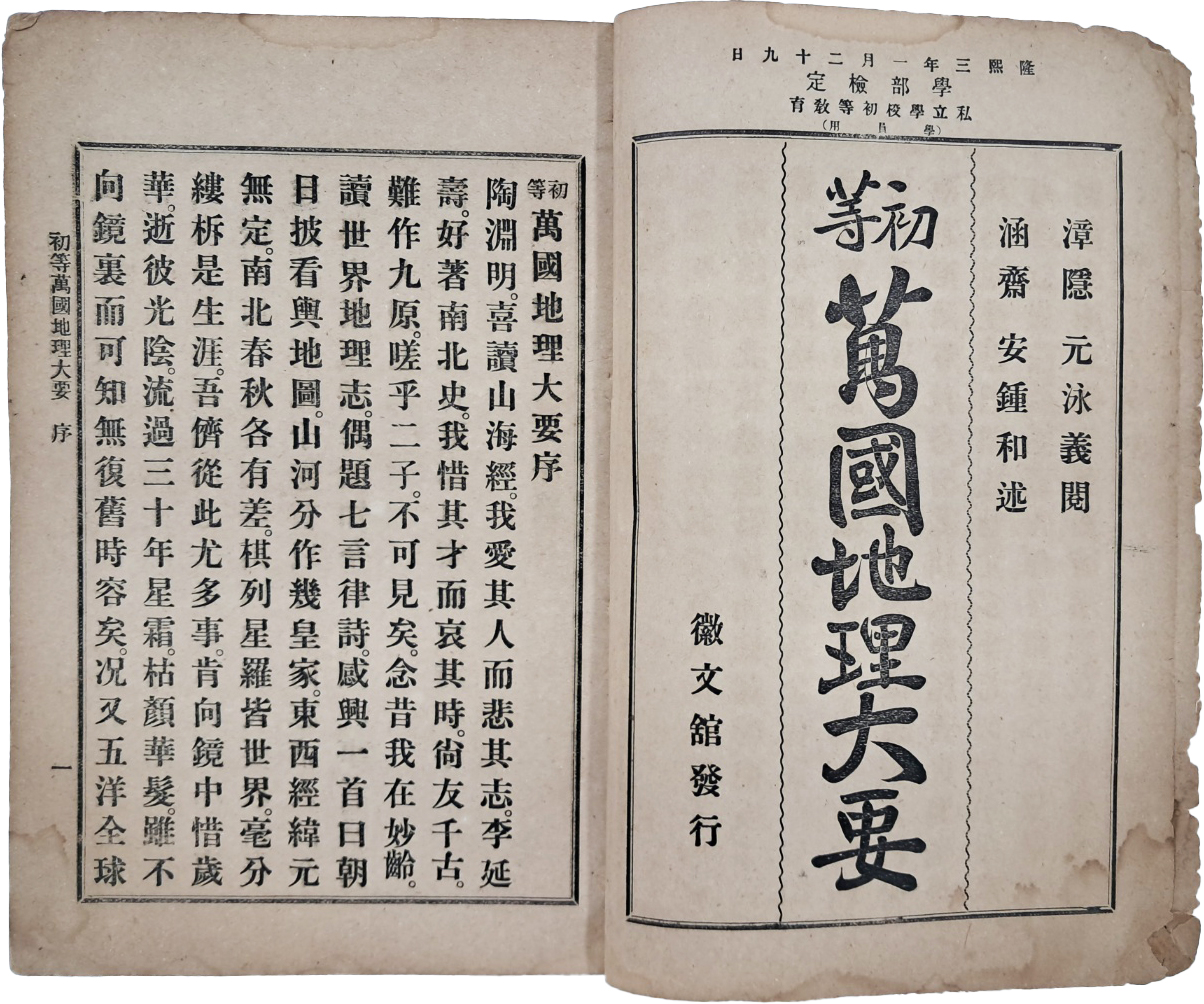 隆熙三年一月二十九日
學部檢定
私立學校初等敎育
(學員用)
漳隱 元泳義閱
涵齋 安鍾和述
初等 萬國地理大要
徽文舘發行
初等萬國地理大要序
陶淵明。喜讀山海經。我愛其人而悲其志。李延
壽。好著南北史。我惜其才而哀其時。尙友千古。
難作九原。嗟乎二子。不可見矣。念昔我在妙齡。
讀世界地理志。偶題七言律詩。感興一首曰朝
日披看輿地圖。山河分作幾皇家。東西經緯元
無定。南北春秋各有差。棋列星羅皆世界。毫分
縷柝是生涯。吾儕從此尤多事。肯向鏡中惜歲
華。逝彼光陰。流過三十年星霜。枯顏華髮。雖不
向鏡裏而可知無復舊時容矣。况又五洋全球
初等萬國地理大要 序
一